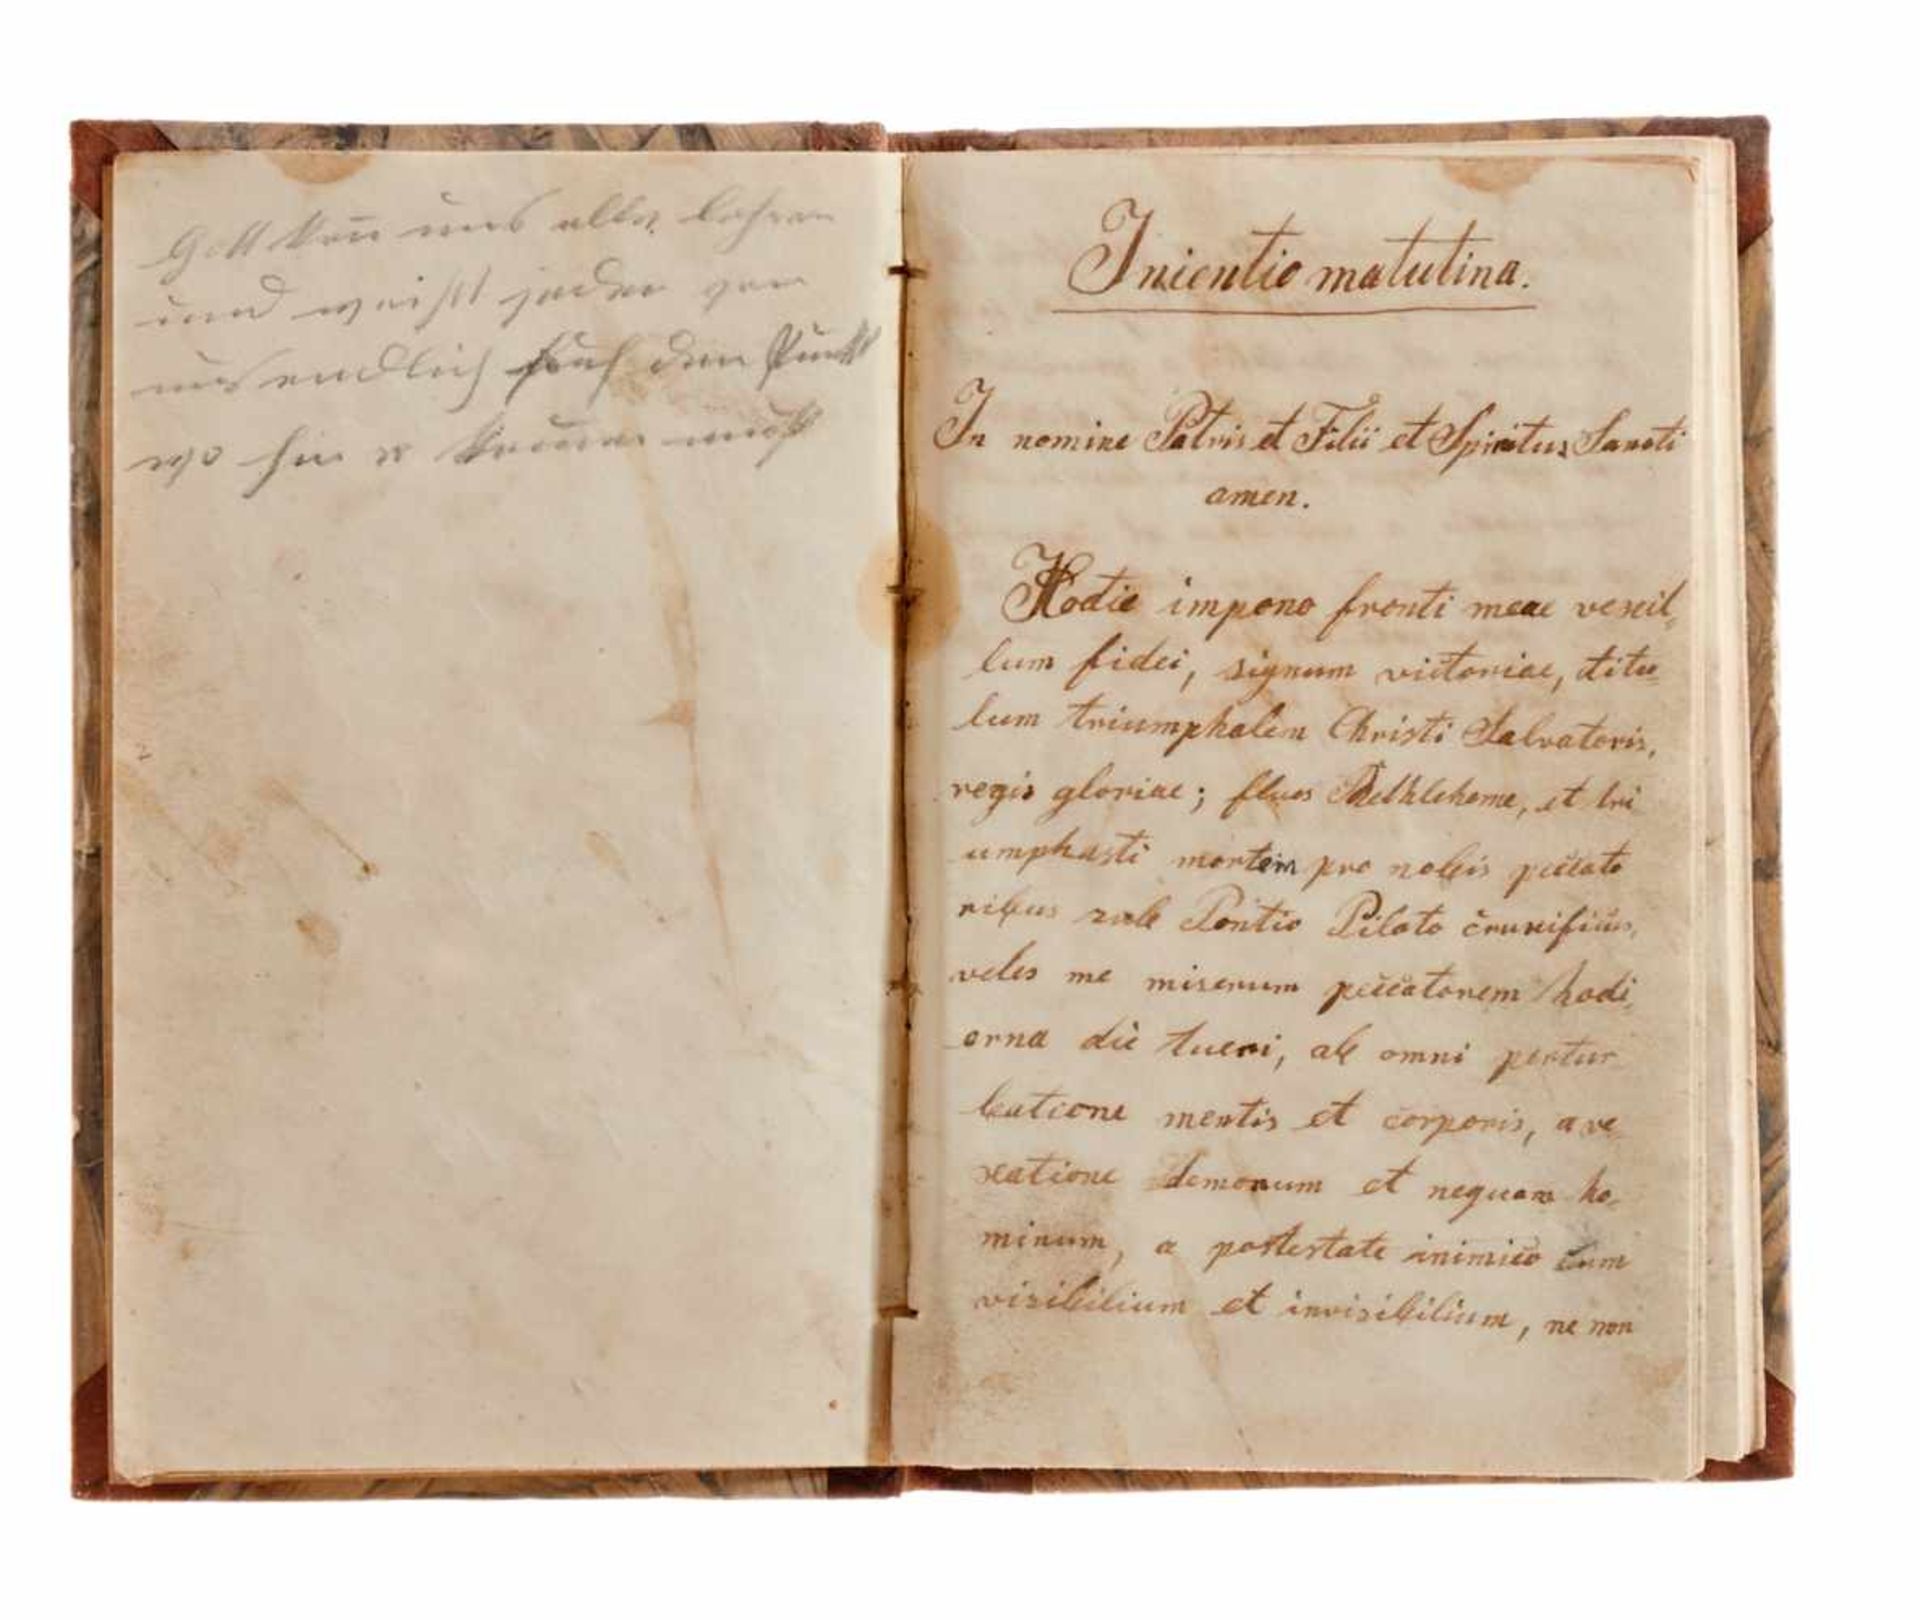 Gott kan uns alles lehren
und weißt jeden von
uns endlich auf den Punkt
wo hin er kommen muß
Inientio matutina.
In nomine Patris et Filii et Spiritus Sancti
amen.
Hodie impono fronti meae vexil„
lum fidei, signum victoriae, titu„
lum triumphalem Christi Salvatoris,
regis gloriae; flvos Bethleheme, et tri
umphasti mortem pro nobis peccato
ribus sub Pontio Pilato crucifixus,
veles me miserum peccatorem hodi„
erna die tueri, ab omni pertur
batione mentis et corporis, a ve„
xatione demonum et nequam ho„
minum, a postestate inimico cum
visibilium et invisibilium, ne non